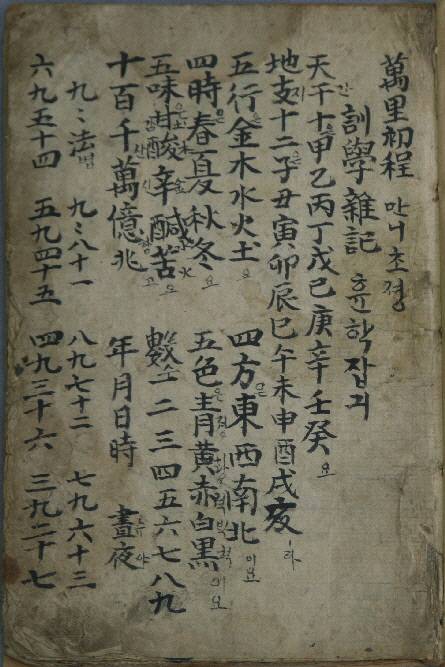 萬里初程 만니초졍
訓學雜記 훈학잡긔
天干간十은甲乙丙丁戊己庚辛壬癸요
地支지十二은子丑寅卯辰巳午未申酉戌亥라
五行은金木水火土요 四方은東西南北이요
四時은春夏秋冬요 五色은靑黃赤白黑이요
五味은甘酸辛鹹苦요 數一二三四五六七八九
十百千萬億兆 年月日時 晝夜주야
九〻法법 九〻八十一 八九七十二 七九六十三
六九五十四 五九四十五 四九三十六 三九二十七